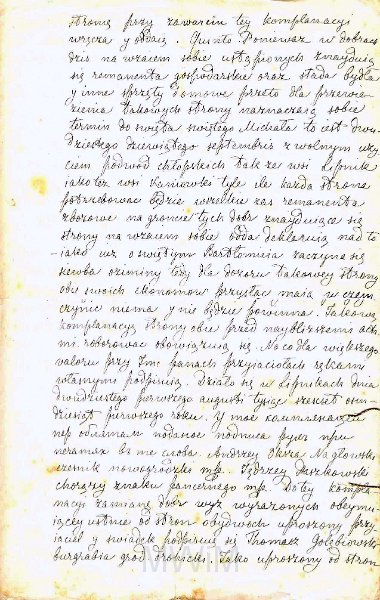 stronę przy zawarciu tey komplanacyi
wręcza y oddaię. Quinto Ponieważ w dobrach
dziś na wzaiem sobie ustąpionych znayduią
się remanenta gospodarskie oraz stada bydła
y inne sprzęty domowe przeto dla przewie-
zienia takowych strony naznaczaią sobie
termin do święta świętego Michała to iest dwu-
dziestego dziewiątego septembris z wolnym uży-
ciem podwód chłopskich tak ze wsi Lipnik
iako też wsi Kaniowski tyle ile każda strona
potrzebować będzie wszelkie zas remanenta
zbożowe na gruncie tych dobr znayduiące się
strony na wzaiem sobie oddać deklaruią nad to
iakoć iuż o świętym Bartłomieia zaczyna się
siewba oziminy tedy dla dozoru takowey strony
obie swoich ekonomow przysłać maią w czem
czynić niema y nie będzie powinna. Takową
komplanacyą strony obie przed naybliższemi akta-
mi roborować obowiązuią się. Na co dla większego
waloru przy Jmć panach przyiaciołach rękami
własnymi podpisuią. Działo się w Lipnikach dnia
dwudziestego pierwszego augusti tysiąc szescet osm-
dziesiąt pierwszego roku. U moe
Andrzey Oksza Nagłowski
czesnik nowogródzki mp. Jędrzey Jaszkowski
chorąży znaku pancernego mp. Do tey kompla-
nacyi zamiany dobr wyż wyrażonych obeymu-
iącey ustnie od stron obydwuch uproszony przy-
iaciel y świadek podpisuię się Thomasz Gołębiowski
burgrabia grod. Iako uproszony od stron
MWiM